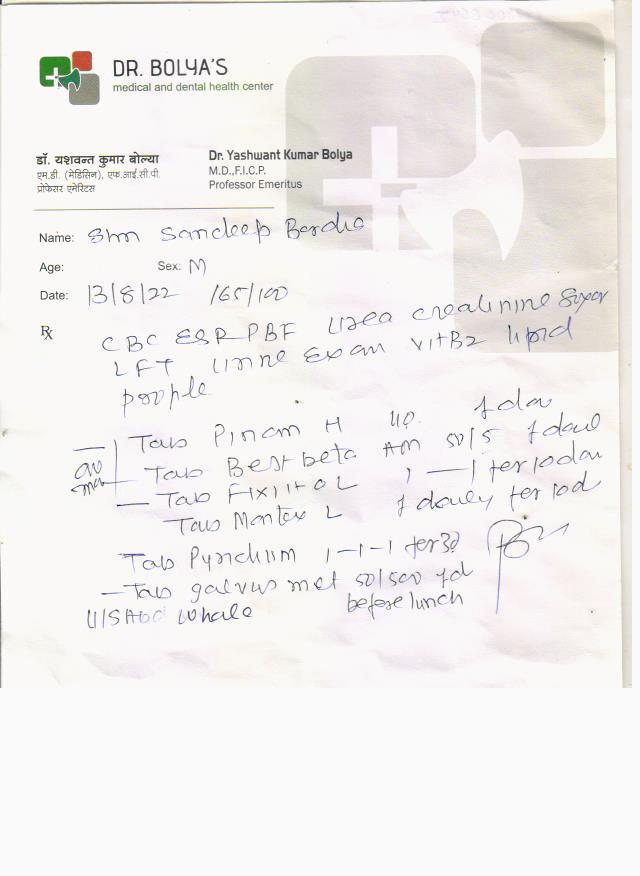 DR. BOLYA'S
medical and dental health center
डॉ. यशवन्त कुमार बोल्या
एम.डी. (मेडिसिन), एफ.आई.सी.पी.
प्रोफेसर एमेरिटस
Dr. Yashwant Kumar Bolya
M.D.,F.I.C.P.
Professor Emeritus
Name: Shri Sandeep
Age: Sex: M
Date: 13/8/22 165/100
Rx
CBC ESR PBF Urea creatinine
LFT Urine Exam vit B2 lipid
Tab H 40
Tab Bestbeta AM 50/5
Tab L 1 — 1 for 10 day
Tab Montex L 1 daily for 10d
Tab 1-1-1 for 3d
Tab galvus met 50/500
before lunch
U/S Abd whole